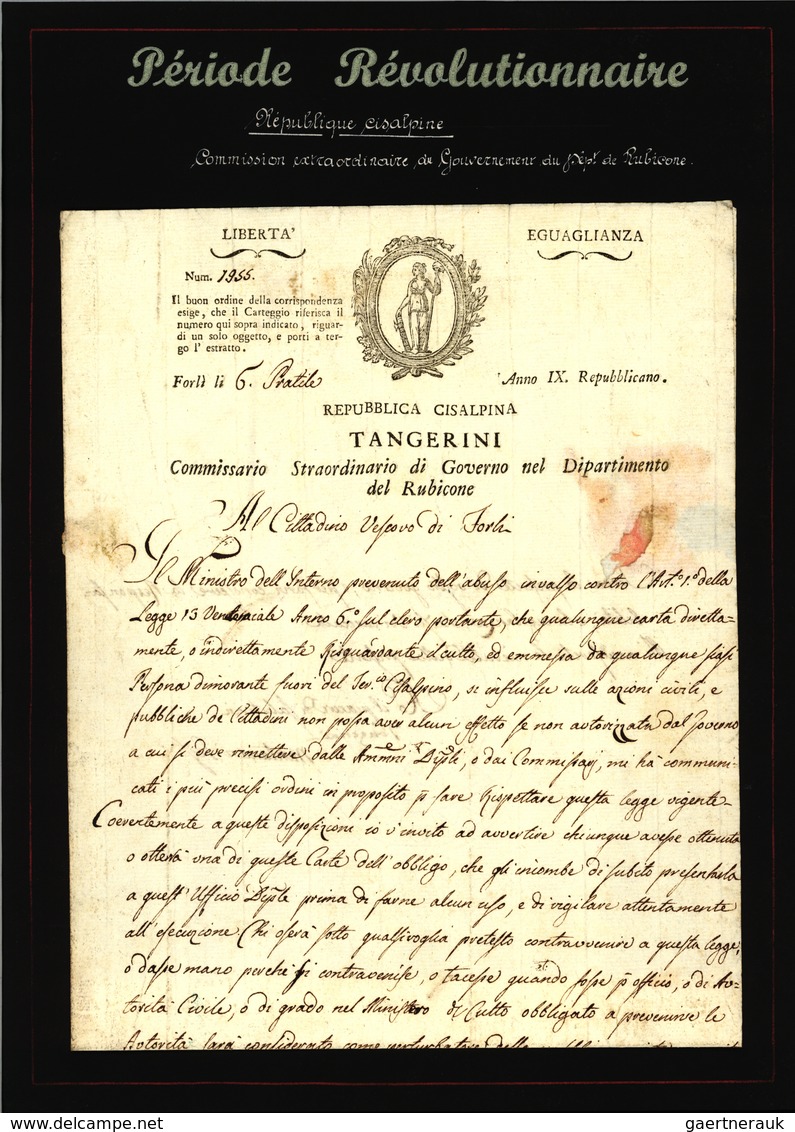 Période Révolutionnaire
République cisalpine
Commission extraordinaire du Gouvernement du Dépt. de Rubicone.
LIBERTA'
EGUAGLIANZA
Num. 1955.
Il buon ordine della corrispondenza
esige, che il Carteggio riferisca il
numero qui sopra indicato, riguar-
di un solo oggetto, e porti a ter-
go l'estratto.
Forlì li 6. Pratile
Anno IX. Repubblicano.
REPUBBLICA CISALPINA
TANGERINI
Commissario Straordinario di Governo nel Dipartimento
del Rubicone
Al Cittadino Vescovo di Forlì
Il Ministro dell'Interno prevenuto dell'abuso invalso contro l'Art.º 1.º della
Legge 13 Vendemiale Anno 6.º sul clero portante, che qualunque carta diretta-
mente, o indirettamente Risguardante il culto, ed emmessa da qualunque siasi
Persona dimorante fuori del Ter.co Cisalpino, si influisse sulle azioni civili, e
pubbliche de Cittadini non possa aver alcun effetto se non autorizzata dal Governo
a cui si deve rimettere dalle Ammni Dipli, o dai Commissarj, mi hà communi-
cati i più precisi ordini in proposito p fare Rispettare questa legge vigente-
Coerentemente a queste disposizioni io v'invito ad avvertire chiunque avesse ottenuta
o otterrà una di queste Carte dell'obbligo, che gli incombe di subito presentarla
a quest'Ufficio Diple prima di farne alcun uso, e di vigilare attentamente
all'esecuzione Chi oserà sotto qualsivoglia pretesto contravvenire a questa legge,
o dasse mano perchè si contravenise, o tacesse quando fosse p officio, o di Au-
torità Civile, o di grado nel Ministero di Culto obbligato a prevenirne le
Autorità sarà considerato come perturbatore della
gaertnerauk